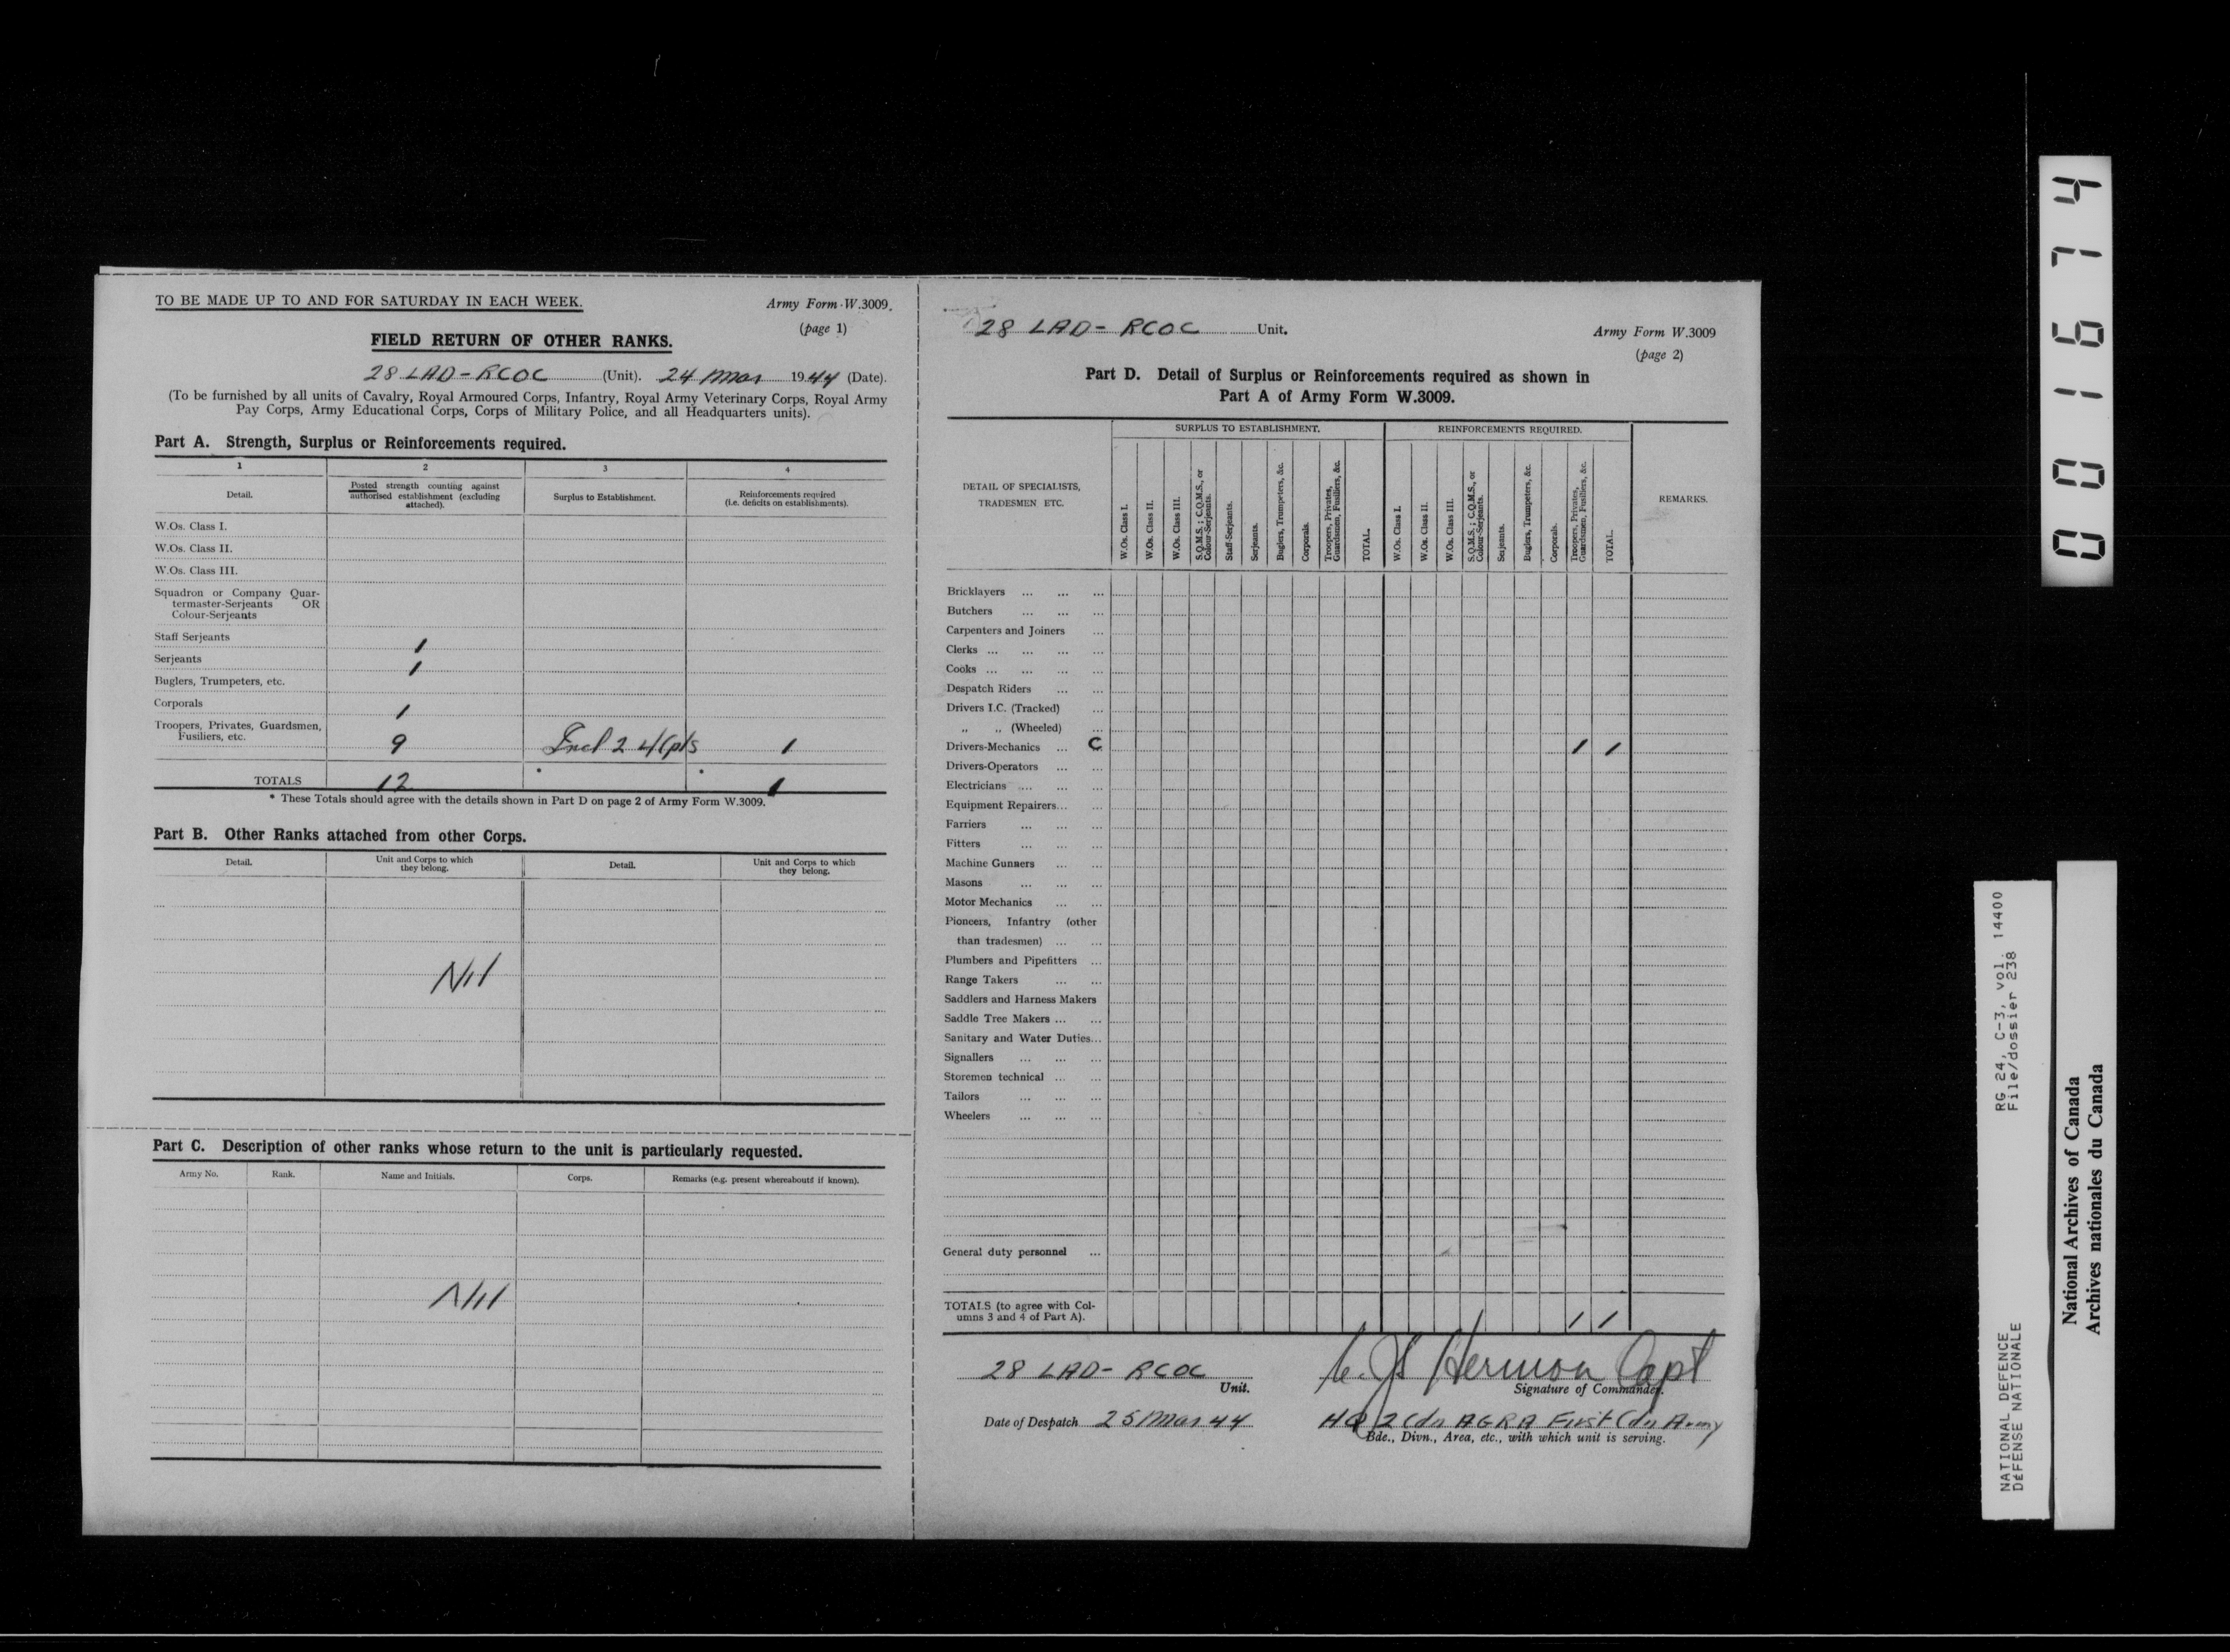 TO BE MADE UP TO AND FOR SATURDAY IN EACH WEEK.
Army Form W.3009.
(page 1)
FIELD RETURN OF OTHER RANKS.
28 LAD - RCOC (Unit). 24 Mar 1944 (Date).
(To be furnished by all units of Cavalry, Royal Armoured Corps, Infantry, Royal Army Veterinary Corps, Royal Army
Pay Corps, Army Educational Corps, Corps of Military Police, and all Headquarters units).
Part A. Strength, Surplus or Reinforcements required.
1 2 3 4
Detail.
Posted strength counting against
authorised establishment (excluding
attached).
Surplus to Establishment.
Reinforcements required
(i.e. deficits on establishments).
W.Os. Class I.
W.Os. Class II.
W.Os. Class III.
Squadron or Company Quar-
termaster-Serjeants OR
Colour-Serjeants
Staff Serjeants 1
Serjeants 1
Buglers, Trumpeters, etc.
Corporals 1
Troopers, Privates, Guardsmen,
Fusiliers, etc. 9 Incl 2 L/Cpls 1
TOTALS 12 * * 1
* These Totals should agree with the details shown in Part D on page 2 of Army Form W.3009.
Part B. Other Ranks attached from other Corps.
Detail.
Unit and Corps to which
they belong.
Detail.
Unit and Corps to which
they belong.
Nil
Part C. Description of other ranks whose return to the unit is particularly requested.
Army No. Rank. Name and Initials. Corps. Remarks (e.g. present whereabouts if known).
Nil
28 LAD - RCOC Unit.
Army Form W.3009
(page 2)
Part D. Detail of Surplus or Reinforcements required as shown in
Part A of Army Form W.3009.
DETAIL OF SPECIALISTS,
TRADESMEN ETC.
SURPLUS TO ESTABLISHMENT.
W.Os. Class I.
W.Os. Class II.
W.Os. Class III.
S.Q.M.S.; C.Q.M.S., or
Colour-Serjeants.
Staff-Serjeants.
Serjeants.
Buglers, Trumpeters, &c.
Corporals.
Troopers, Privates,
Guardsmen, Fusiliers, &c.
TOTAL.
REINFORCEMENTS REQUIRED.
W.Os. Class I.
W.Os. Class II.
W.Os. Class III.
S.Q.M.S.; C.Q.M.S., or
Colour-Serjeants.
Serjeants.
Buglers, Trumpeters, &c.
Corporals.
Troopers, Privates,
Guardsmen, Fusiliers, &c.
TOTAL.
REMARKS.
Bricklayers ... ... ...
Butchers ... ... ...
Carpenters and Joiners ...
Clerks ... ... ... ...
Cooks ... ... ... ...
Despatch Riders ... ...
Drivers I.C. (Tracked) ...
„ „ (Wheeled) ...
Drivers-Mechanics ... C 1 1
Drivers-Operators ... ...
Electricians ... ... ...
Equipment Repairers... ...
Farriers ... ... ...
Fitters ... ... ...
Machine Gunners ... ...
Masons ... ... ...
Motor Mechanics ... ...
Pioneers, Infantry (other
than tradesmen) ... ...
Plumbers and Pipefitters ...
Range Takers ... ...
Saddlers and Harness Makers
Saddle Tree Makers ... ...
Sanitary and Water Duties...
Signallers ... ... ...
Storemen technical ... ...
Tailors ... ... ...
Wheelers ... ... ...
General duty personnel ...
TOTALS (to agree with Col-
umns 3 and 4 of Part A). 1 1
28 LAD - RCOC
Unit.
Hermon Capt
Signature of Commander.
Date of Despatch 25 Mar 44
HQ 2 Cdn AGRA First Cdn Army
Bde., Divn., Area, etc., with which unit is serving.
001674
NATIONAL DEFENCE RG 24, C-3, vol. 14400
DÉFENSE NATIONALE File/dossier 238
National Archives of Canada
Archives nationales du Canada